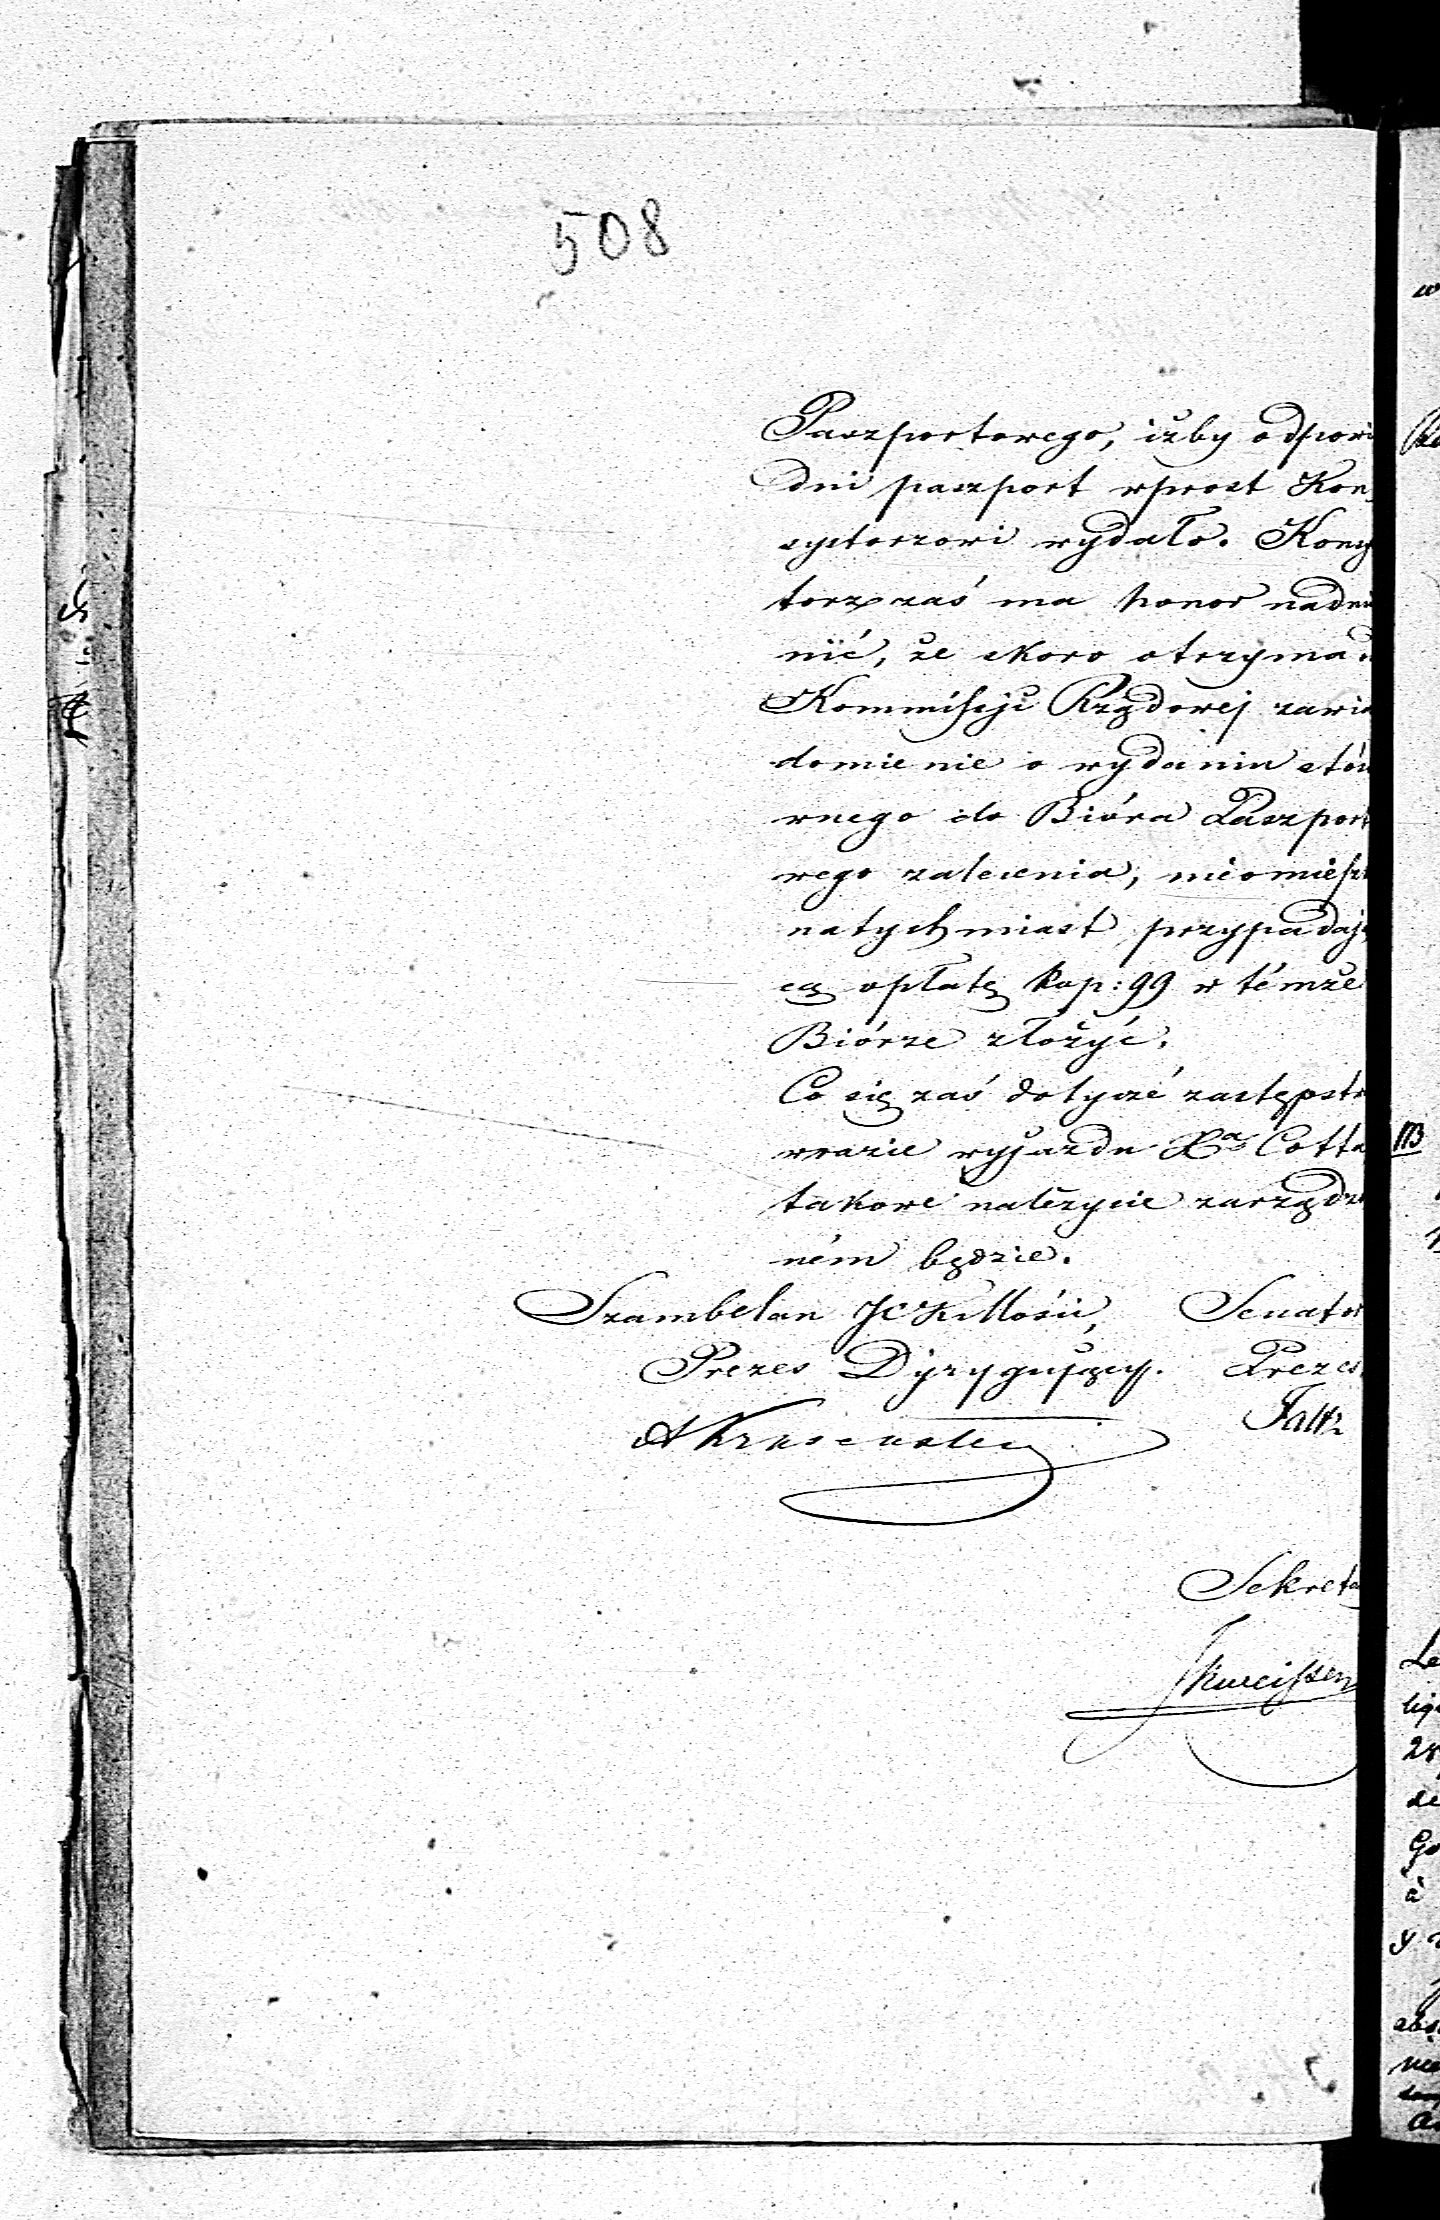 508
Paszportowego, iżby odpowie
dni paszport wprost Kon,
systorzowi wydało. Konsy
torz zaś ma honor nadmie
nić, że skoro otrzyma
Kommissyi Rządowej zawia
domienie o wydaniu stóso
wnego do Bióra Paszporto
wego zalecenia, nieomieszka
natychmiast przypadają
cą opłatę kop: 99 w témże
Biórze złożyć.
Co się zaś dotyczé zastępstwa
wrazie wyjazdu Xa Cotta,
takowe należycie zarządzo
ném będzie.
Szambelan JCKMości, Senator
Prezes Dyrygujący. Prezes
Sekreta